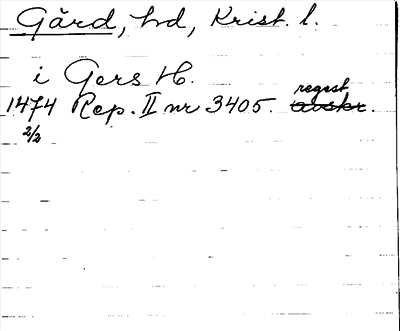 Gård, hd, Krist. l.
i Gers H.
1474 Rep. II nr 3405. regest avskr.
2/2